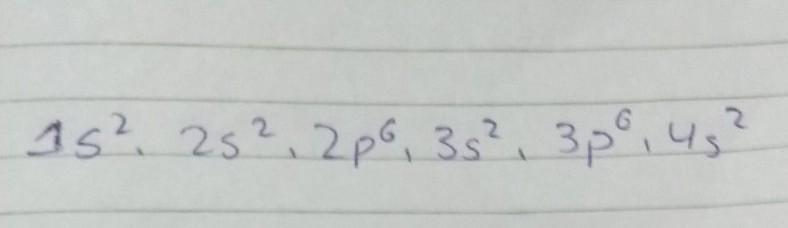 1s². 2s², 2p⁶, 3s², 3p⁶, 4s²